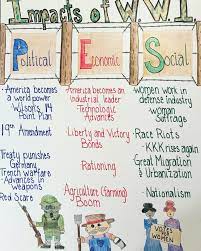 Impacts of WW1
Political
Economic
Social
-America becomes
a world power
-Wilson's 14
Point Plan
19th Amendment
Treaty punishes
Germany
-French warfare
-Advances in
weapons
Red Scare
-America becomes an
industrial leader
-Technologic
Advances
Liberty and Victory
Bonds
Rationing
Agriculture (farming)
Boom
women work in
defense industry
woman
Suffrage
Race Riots
-KKK rises again
Great Migration
& Urbanization
-Nationalism
VOTES
FOR
WOMEN